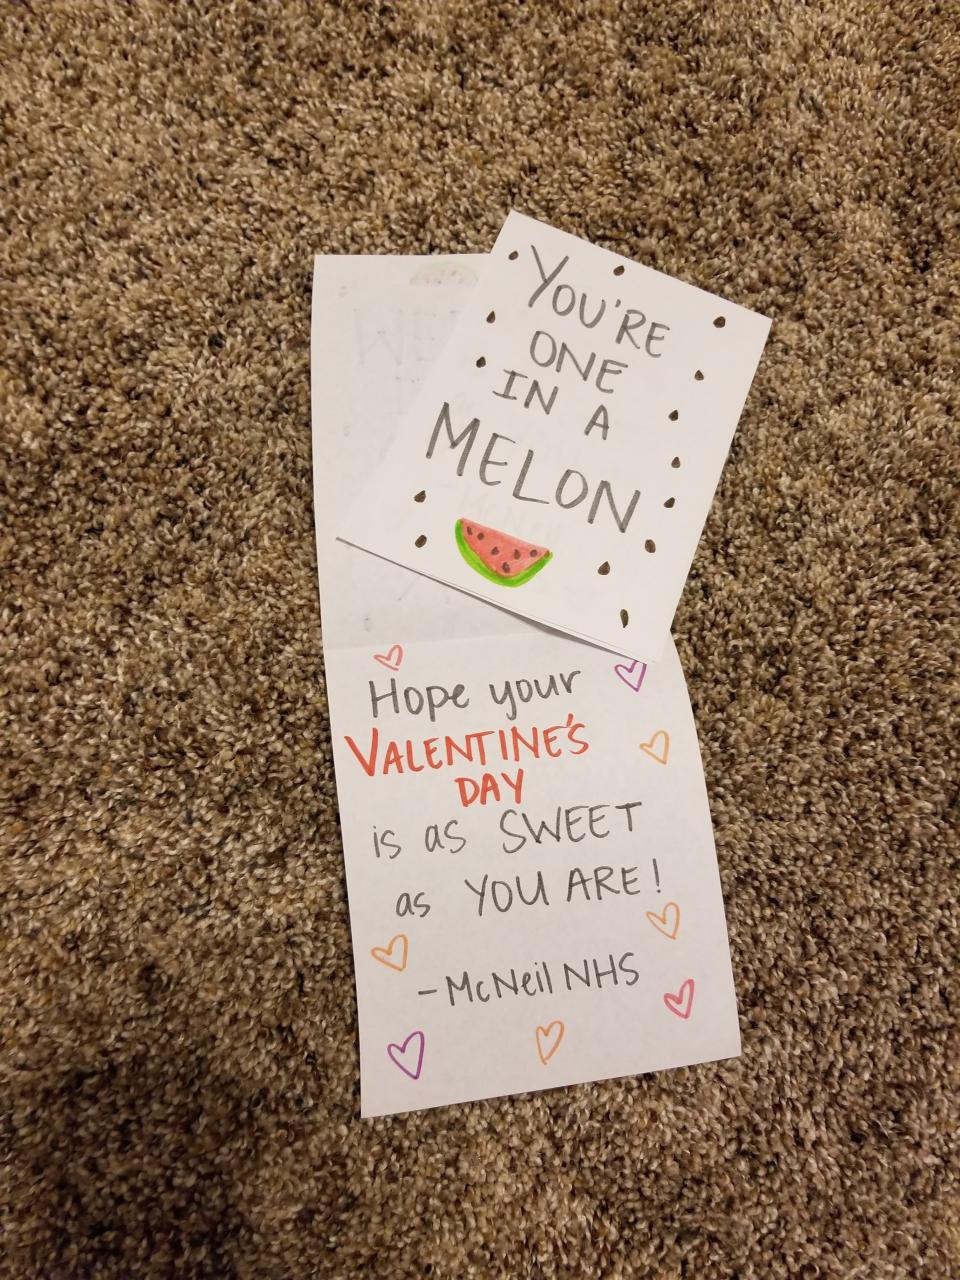 YOU'RE
ONE
IN A
MELON
Hope your
VALENTINE'S
DAY
is as SWEET
as YOU ARE!
-McNeil NHS